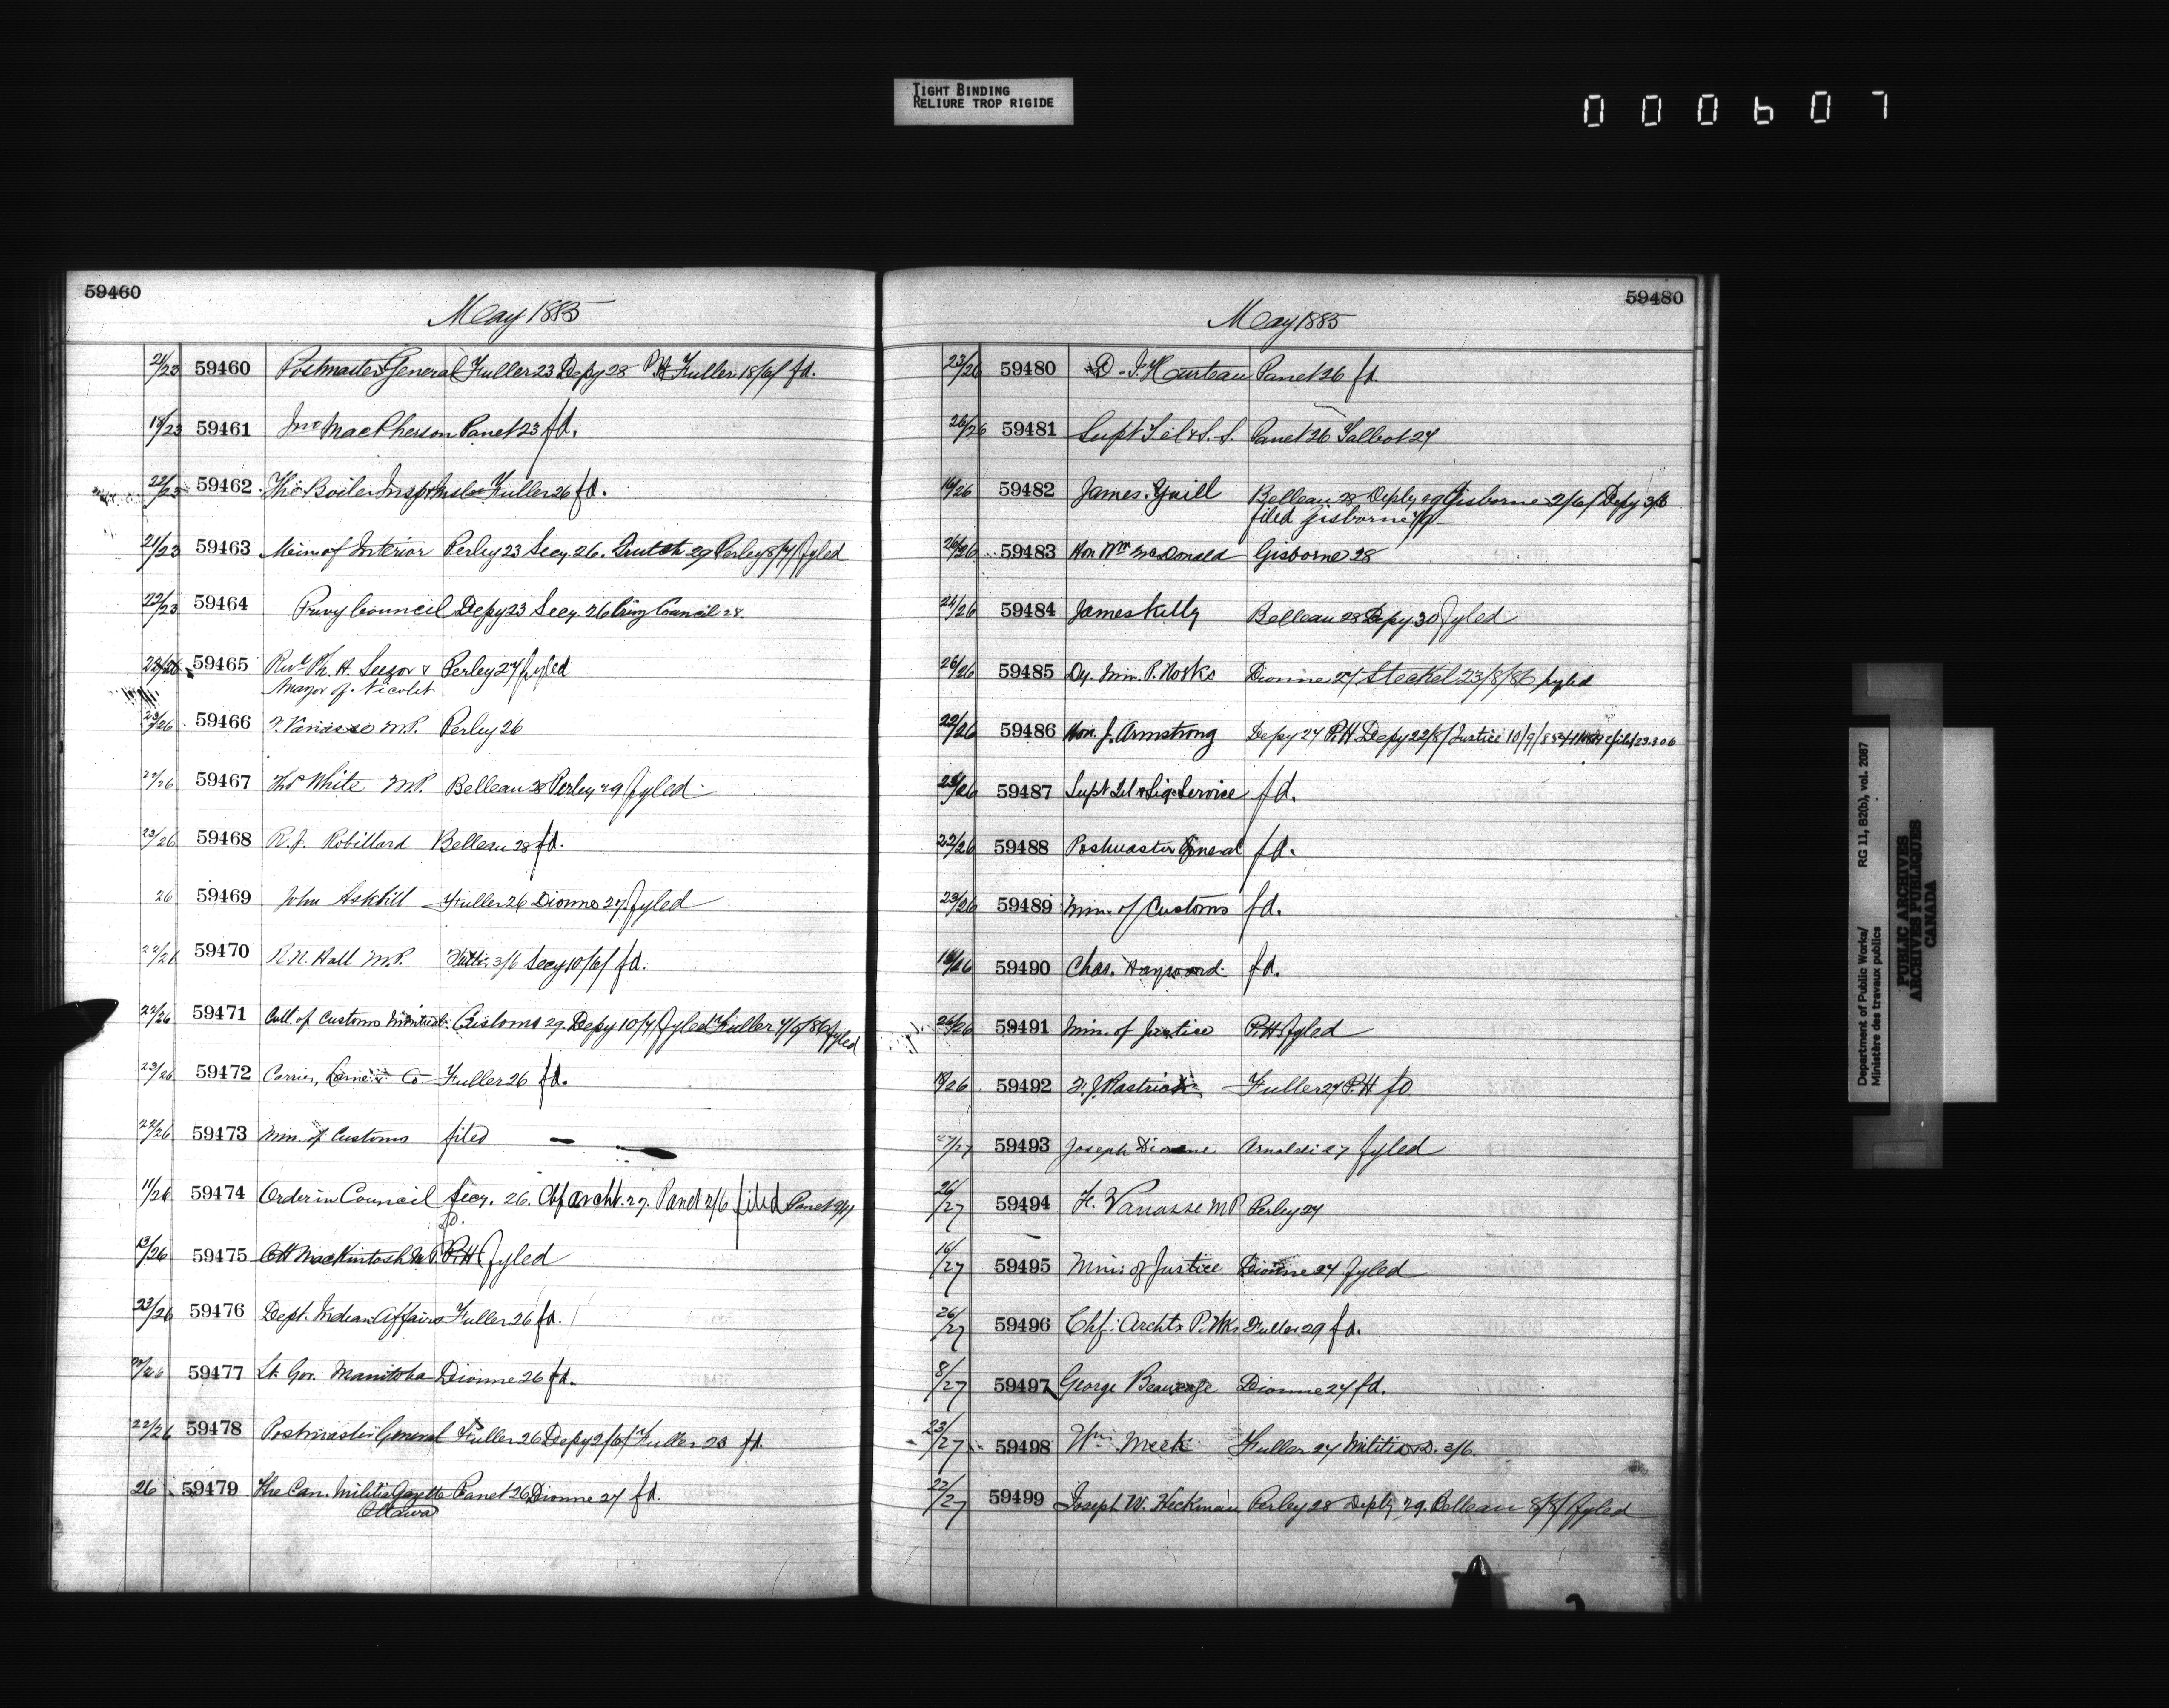 TIGHT BINDING
RELIURE TROP RIGIDE
000607
59460
May 1885
21/23 59460 Postmaster General Fuller 23 Depy 28 P.H Fuller 18/6/ fd.
18/23 59461 Jno MacPherson Panet 23 fd.
22/23 59462 The Boiler Insp & Fuller 26 fd.
21/23 59463 Min of Interior Perley 23 Secy. 26. 29 Perley 8/7/ fyled
22/23 59464 Privy Council Depy 23 Secy. 26 Privy Council 28.
23/26 59465 Revd Ph. H. & Perley 27 fyled
Mayor of Nicolet
23/26 59466 F. Vanasse M.P. Perley 26
22/26 59467 Thos White M.P. Belleau 28 Perley 29 fyled
23/26 59468 R.J. Robillard Belleau 28 fd.
26 59469 John Askhill Fuller 26 Dionne 27. fyled
22/26 59470 R.N. Hall M.P. 3/6 Secy 10/6/ fd.
22/26 59471 Coll. of Customs Montreal Customs 29. Depy 10/7/ fyled Fuller 4/6/86 fyled
23/26 59472 Carrier, Laine Co Fuller 26 fd.
22/26 59473 Min. of Customs filed
11/26 59474 Order in Council Secy. 26. Chf archt. 27. Panet 2/6 filed Panet
fd.
13/26 59475 CH MacKintosh M.P. P.H fyled
23/26 59476 Dept. Indian Affairs Fuller 26 fd.
59477 Lt Gov. Manitoba Dionne 26 fd.
22/26 59478 Postmaster General Fuller 26 Depy 2/6/ Fuller 23 fd.
26 59479 The Can. Militia Gazette Panet 26 Dionne 27 fd.
Ottawa
59480
May 1885
23/26 59480 D. J. Hurteau Panet 26 fd.
26/26 59481 Supt Tel & S.S. Panet 26 Talbot 27
16/26 59482 James Yuill Belleau 28 Deply 29 Gisborne 2/6/ Depy 3/6
filed Gisborne
26/26 59483 Hon Wm McDonald Gisborne 28
59484 James Kelly Belleau 28 Depy 30 fyled
26/26 59485 Dy. Min. P. Works Dionne 27 Steckel 23/8/86 fyled
22/26 59486 Hon. J. Armstrong Depy 27 P.H Depy 22/8/ Justice 10/9/85
59487 Supt Tel & Sig. Service fd.
22/26 59488 Postmaster General fd.
23/26 59489 Min. of Customs fd.
18/26 59490 Chas. Hayward fd.
59491 Min. of Justice P.H fyled
59492 F. J. Rastrick Fuller 27 P.H fd
59493 Joseph Dionne Arnoldi 27 fyled
26/27 59494 F. Vanasse MP Perley 27
16/27 59495 Min: of Justice Dionne 27 fyled
26/27 59496 Chf: Archts P. Wks Fuller 29 fd.
8/27 59497 George Beaucage Dionne 27 fd.
23/27 59498 Wm Meek Fuller 27 Militia & D. 3/6.
22/27 59499 Joseph W. Heckman Perley 28 Deply 29. Belleau 8/8/ fyled
Department of Public Works/ RG 11, B2(b), vol. 2087
Ministère des travaux publics
PUBLIC ARCHIVES
ARCHIVES PUBLIQUES
CANADA